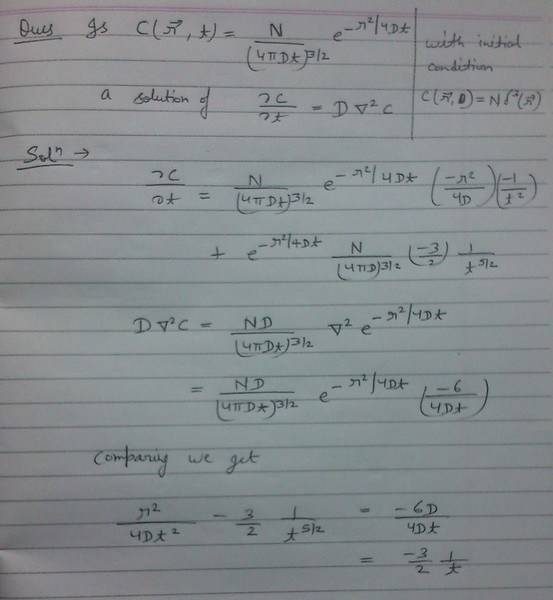 Ques Is C(r⃗, t) = N/(4πDt)^3/2 e^-r²/4Dt
with initial
condition
a solution of ∂C/∂t = D ∇²C
C(r⃗, 0) = Nδ³(r⃗)
Solⁿ →
∂C/∂t = N/(4πDt)^3/2 e^-r²/4Dt (-r²/4D)(-1/t²)
+ e^-r²/4Dt N/(4πD)^3/2 (-3/2) 1/t^5/2
D∇²C = ND/(4πDt)^3/2 ∇² e^-r²/4Dt
= ND/(4πDt)^3/2 e^-r²/4Dt (-6/4Dt)
Comparing we get
r²/4Dt² - 3/2 1/t^5/2 = -6D/4Dt
= -3/2 1/t